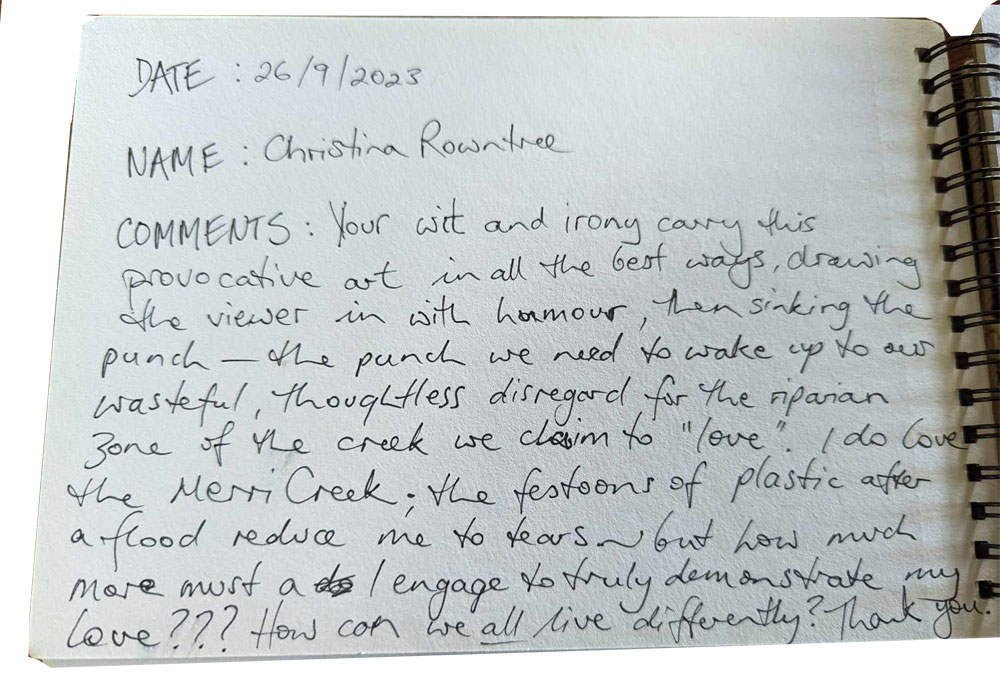 DATE : 26/9/2023
NAME : Christina Rowntree
COMMENTS : Your wit and irony carry this
provocative art in all the best ways, drawing
the viewer in with humour, then sinking the
punch — the punch we need to wake up to our
wasteful, thoughtless disregard for the riparian
zone of the creek we claim to "love". I do love
the Merri Creek; the festoons of plastic after
a flood reduce me to tears ~ but how much
more must a I engage to truly demonstrate my
love??? How can we all live differently? Thank you.